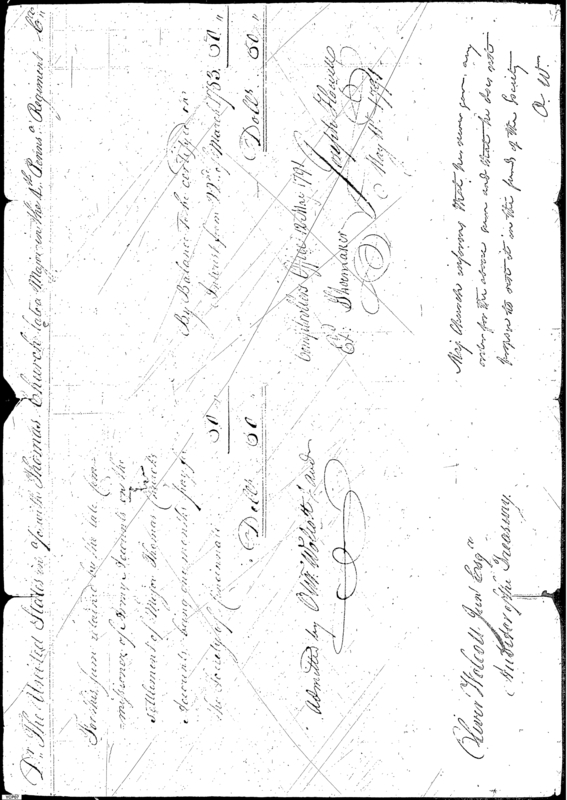 Dr. The United States in a/c with Thomas Church late a Major in the 4th Penns. a Regiment Cr.
For this sum retained by the late Com
missioner of Army Accounts on the
settlement of Major Thomas Church's
Accounts being one months pay for
the Society of Cincinnati 50 "
Dolls. 50 "
By Balance To be certified in
Interest from 22nd of March 1783. 50 "
Dolls. 50 "
Admitted by Oliv. Wolcott Jun. Aud
Comptrollers Office 1791
Ed. Shoemaker
Joseph Howell
May 1791
Oliver Wolcott Junr. Esqr.
Auditor of the Treasury.
Maj Church informs that he never gave any
order for the above sum and that he does not
propose to vest it in the funds of the Society
O. W.